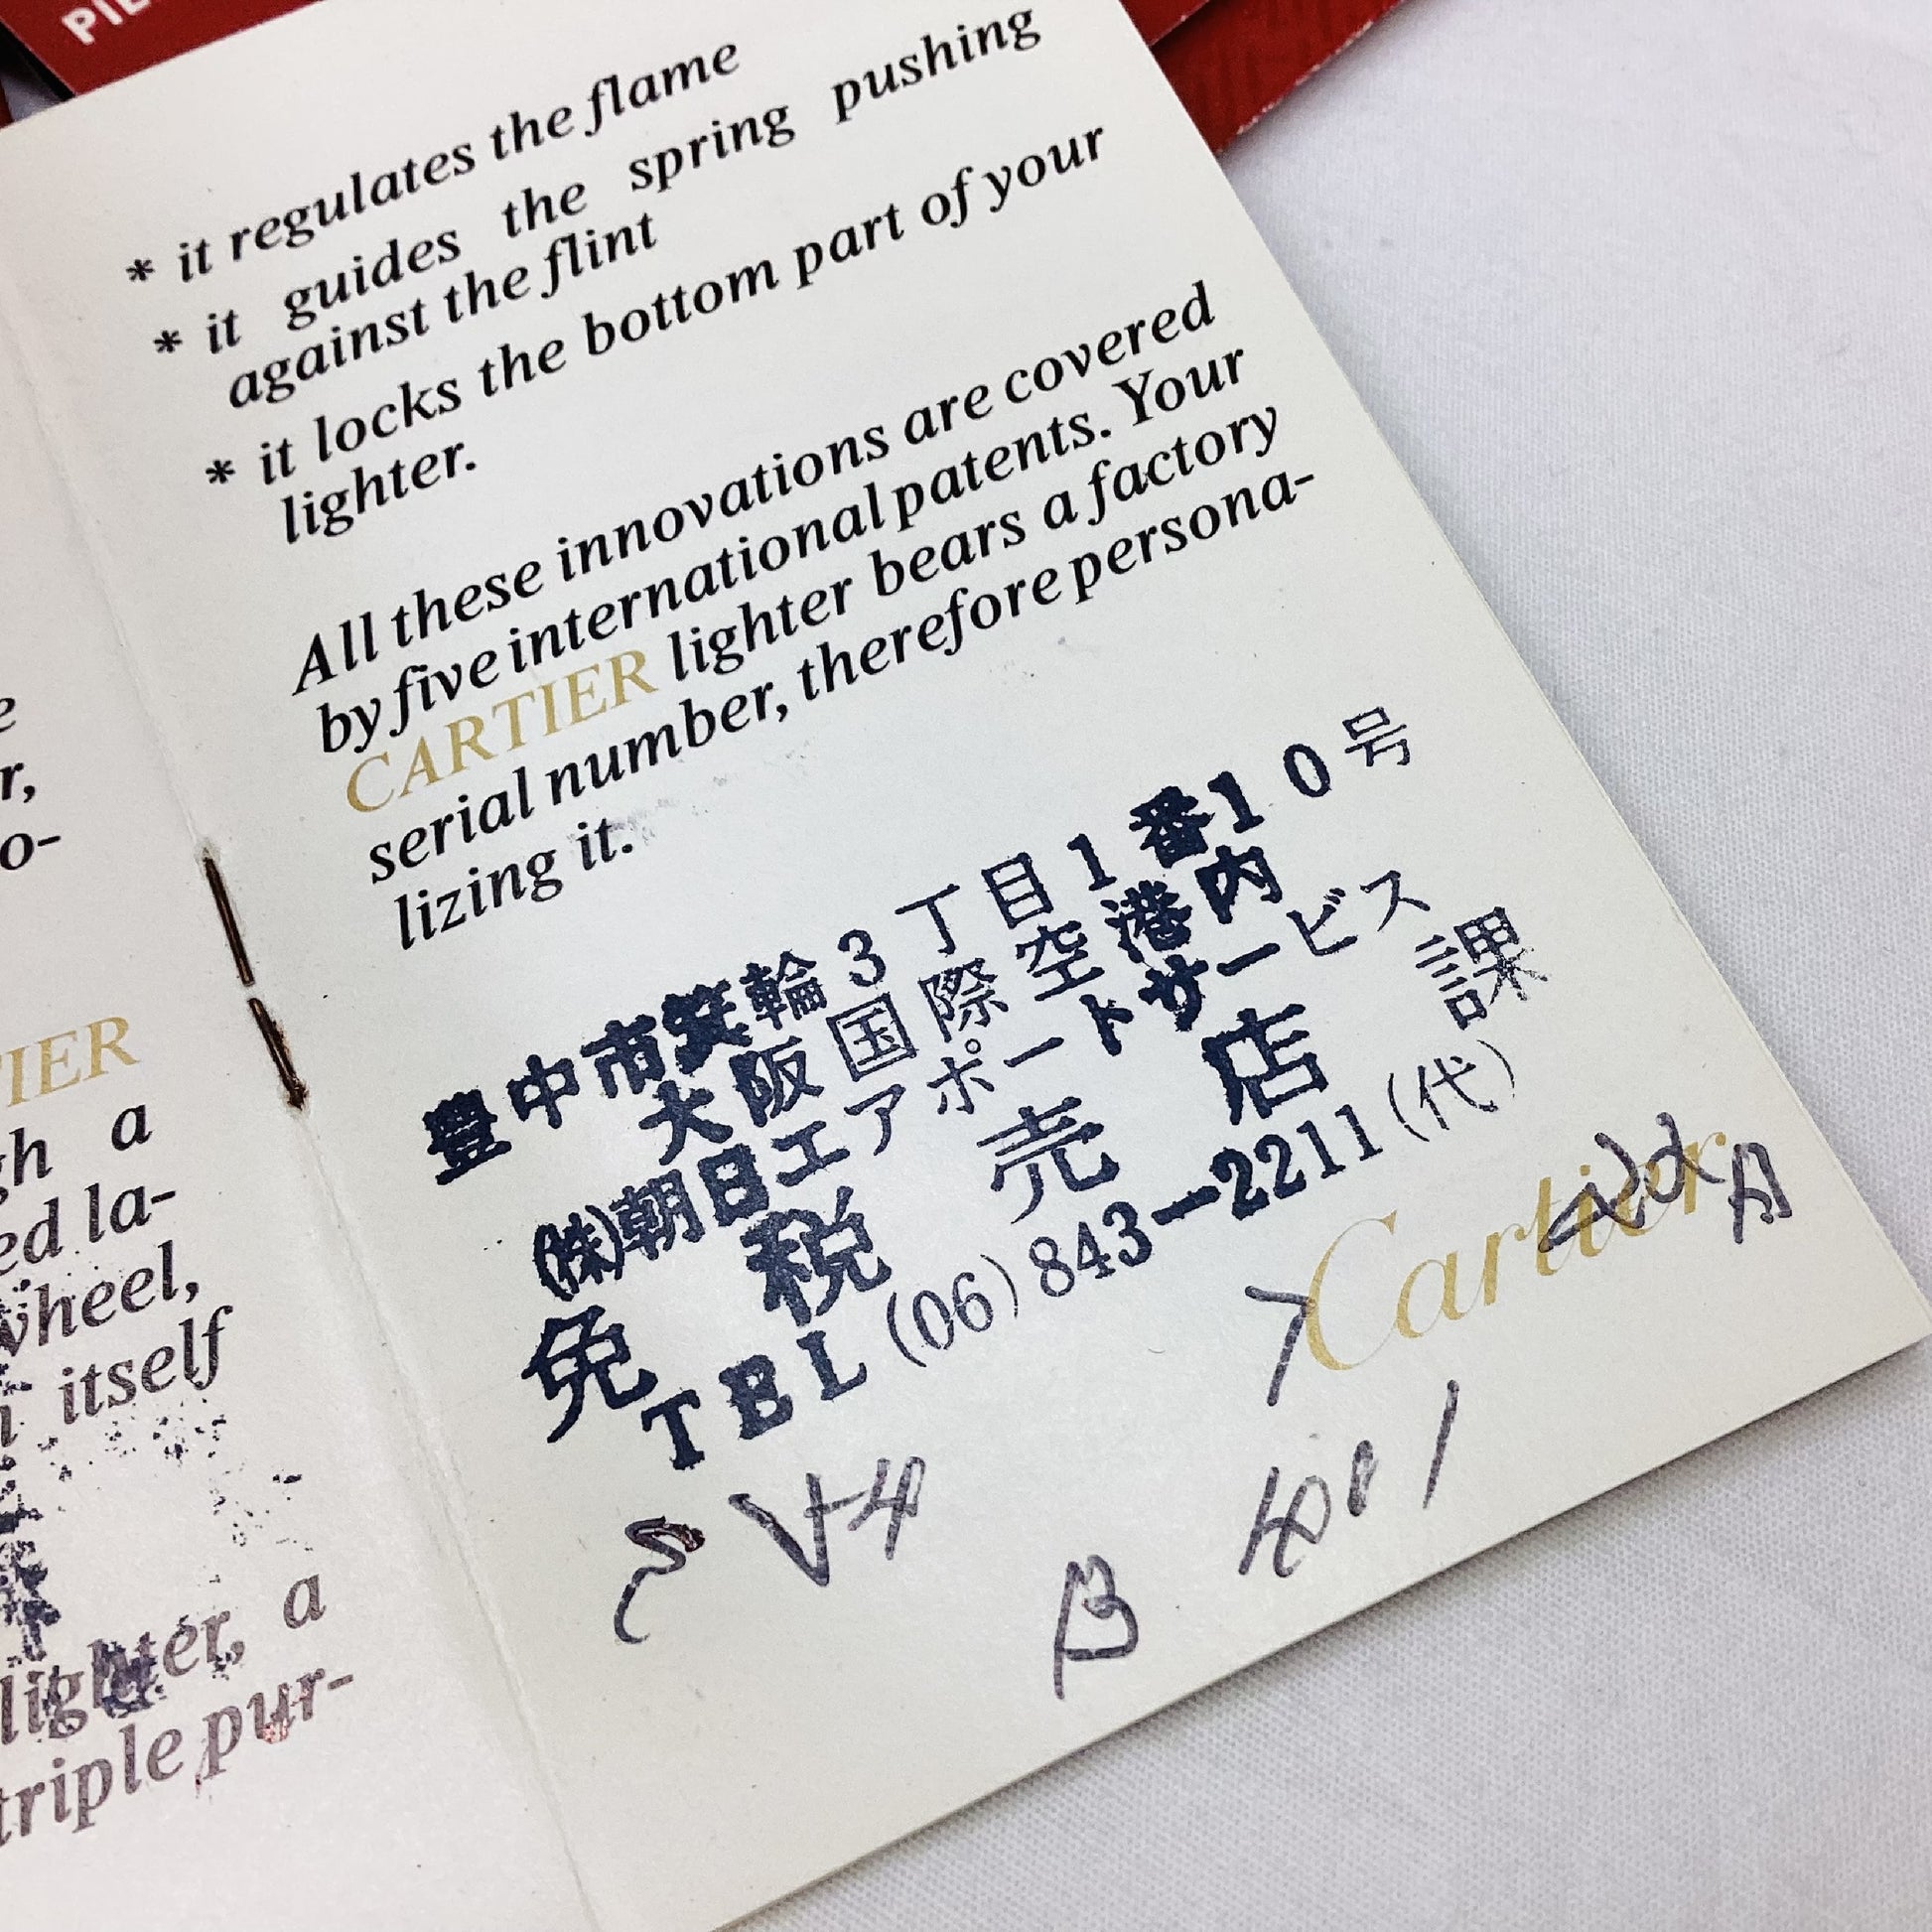 * it regulates the flame
* it guides the spring pushing
against the flint
* it locks the bottom part of your
lighter.
All these innovations are covered
by five international patents. Your
CARTIER lighter bears a factory
serial number, therefore persona-
lizing it.
豊中市箕輪3丁目1番10号
大阪国際空港内
(株)朝日エアポートサービス
免税売店課
TEL(06)843-2211(代)
Cartier
TIER
a
ed la-
wheel,
itself
lighter, a
triple pur-